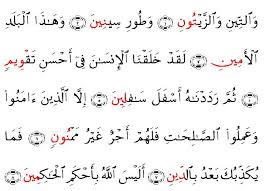 وَٱلتِّينِ وَٱلزَّيْتُونِ ۝١ وَطُورِ سِينِينَ ۝٢ وَهَٰذَا ٱلْبَلَدِ
ٱلْأَمِينِ ۝٣ لَقَدْ خَلَقْنَا ٱلْإِنسَٰنَ فِىٓ أَحْسَنِ تَقْوِيمٍ
۝٤ ثُمَّ رَدَدْنَٰهُ أَسْفَلَ سَٰفِلِينَ ۝٥ إِلَّا ٱلَّذِينَ ءَامَنُوا۟
وَعَمِلُوا۟ ٱلصَّٰلِحَٰتِ فَلَهُمْ أَجْرٌ غَيْرُ مَمْنُونٍ ۝٦ فَمَا
يُكَذِّبُكَ بَعْدُ بِٱلدِّينِ ۝٧ أَلَيْسَ ٱللَّهُ بِأَحْكَمِ ٱلْحَٰكِمِينَ ۝٨